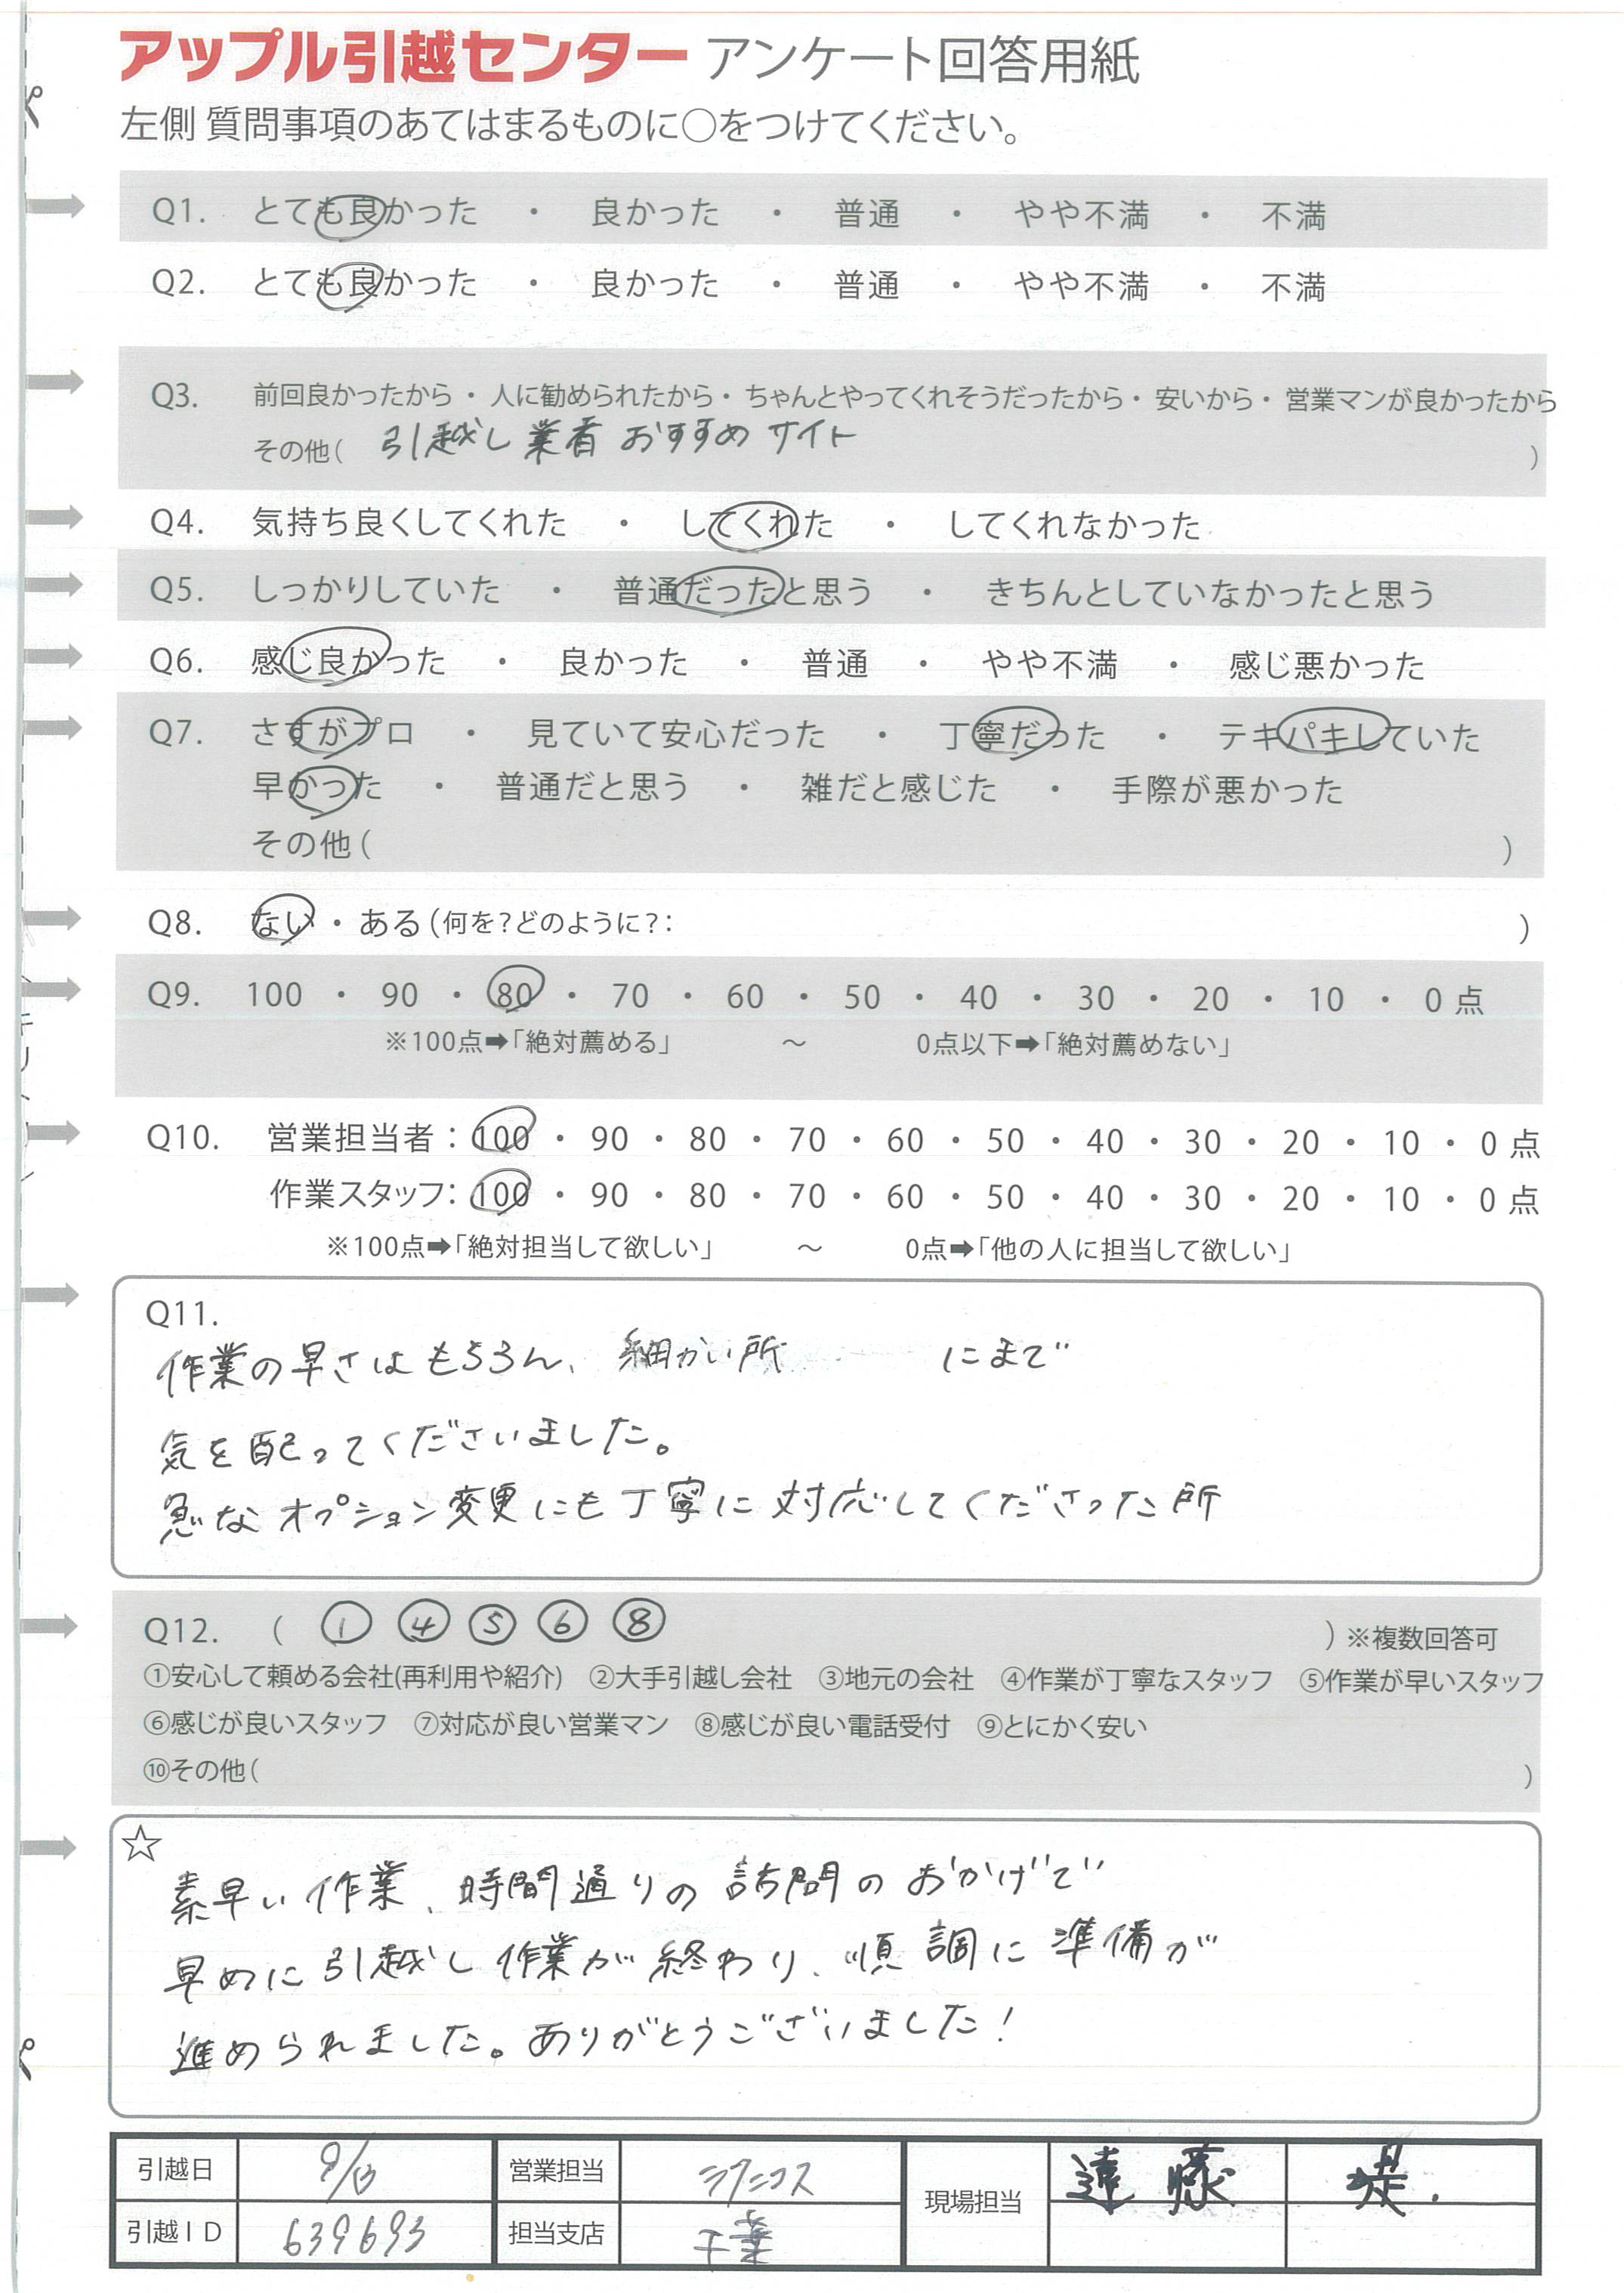 アップル引越センター アンケート回答用紙
左側 質問事項のあてはまるものに○をつけてください。
Q1. とても良かった ・ 良かった ・ 普通 ・ やや不満 ・ 不満
Q2. とても良かった ・ 良かった ・ 普通 ・ やや不満 ・ 不満
Q3. 前回良かったから・ 人に勧められたから・ ちゃんとやってくれそうだったから・ 安いから・ 営業マンが良かったから
その他( 引越し業者 おすすめ サイト )
Q4. 気持ち良くしてくれた ・ してくれた ・ してくれなかった
Q5. しっかりしていた ・ 普通だったと思う ・ きちんとしていなかったと思う
Q6. 感じ良かった ・ 良かった ・ 普通 ・ やや不満 ・ 感じ悪かった
Q7. さすがプロ ・ 見ていて安心だった ・ 丁寧だった ・ テキパキしていた
早かった ・ 普通だと思う ・ 雑だと感じた ・ 手際が悪かった
その他( )
Q8. ない ・ ある(何を?どのように?: )
Q9. 100 ・ 90 ・ 80 ・ 70 ・ 60 ・ 50 ・ 40 ・ 30 ・ 20 ・ 10 ・ 0 点
※100点➡「絶対薦める」 ～ 0点以下➡「絶対薦めない」
Q10. 営業担当者：100 ・ 90 ・ 80 ・ 70 ・ 60 ・ 50 ・ 40 ・ 30 ・ 20 ・ 10 ・ 0 点
作業スタッフ：100 ・ 90 ・ 80 ・ 70 ・ 60 ・ 50 ・ 40 ・ 30 ・ 20 ・ 10 ・ 0 点
※100点➡「絶対担当して欲しい」 ～ 0点➡「他の人に担当して欲しい」
Q11.
作業の早さはもちろん、細かい所 にまで
気を配ってくださいました。
急なオプション変更にも丁寧に対応してくださった所
Q12. ( ① ④ ⑤ ⑥ ⑧ ) ※複数回答可
①安心して頼める会社(再利用や紹介) ②大手引越し会社 ③地元の会社 ④作業が丁寧なスタッフ ⑤作業が早いスタッフ
⑥感じが良いスタッフ ⑦対応が良い営業マン ⑧感じが良い電話受付 ⑨とにかく安い
⑩その他( )
☆
素早い作業、時間通りの訪問のおかげで
早めに引越し作業が終わり、順調に準備が
進められました。ありがとうございました!
引越日 9/13 営業担当 現場担当 遠藤 堤.
引越ID 639693 担当支店 千葉